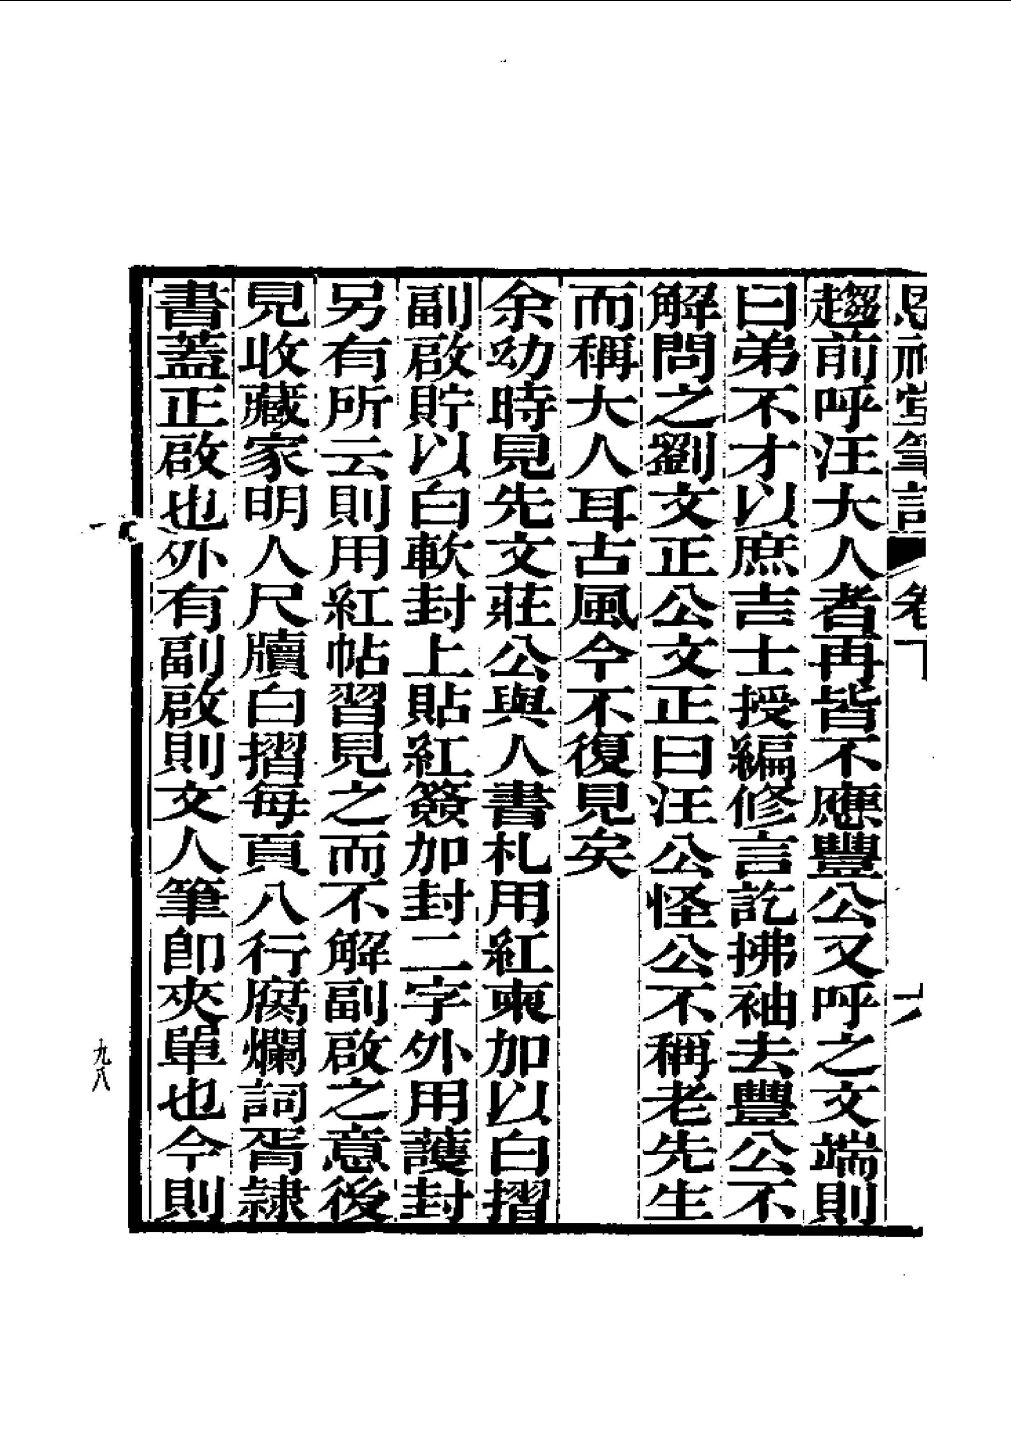 恩福堂筆記 卷下 六
趨前呼汪大人者再皆不應豐公又呼之文端則
曰弟不才以庶吉士授編修言訖拂袖去豐公不
解問之劉文正公文正曰汪公怪公不稱老先生
而稱大人耳古風今不復見矣
余幼時見先文莊公與人書札用紅柬加以白摺
副啟貯以白軟封上貼紅簽加封二字外用護封
另有所云則用紅帖習見之而不解副啟之意後
見收藏家明人尺牘白摺每頁八行腐爛詞胥隸
書蓋正啟也外有副啟則文人筆卽夾單也今則
九八